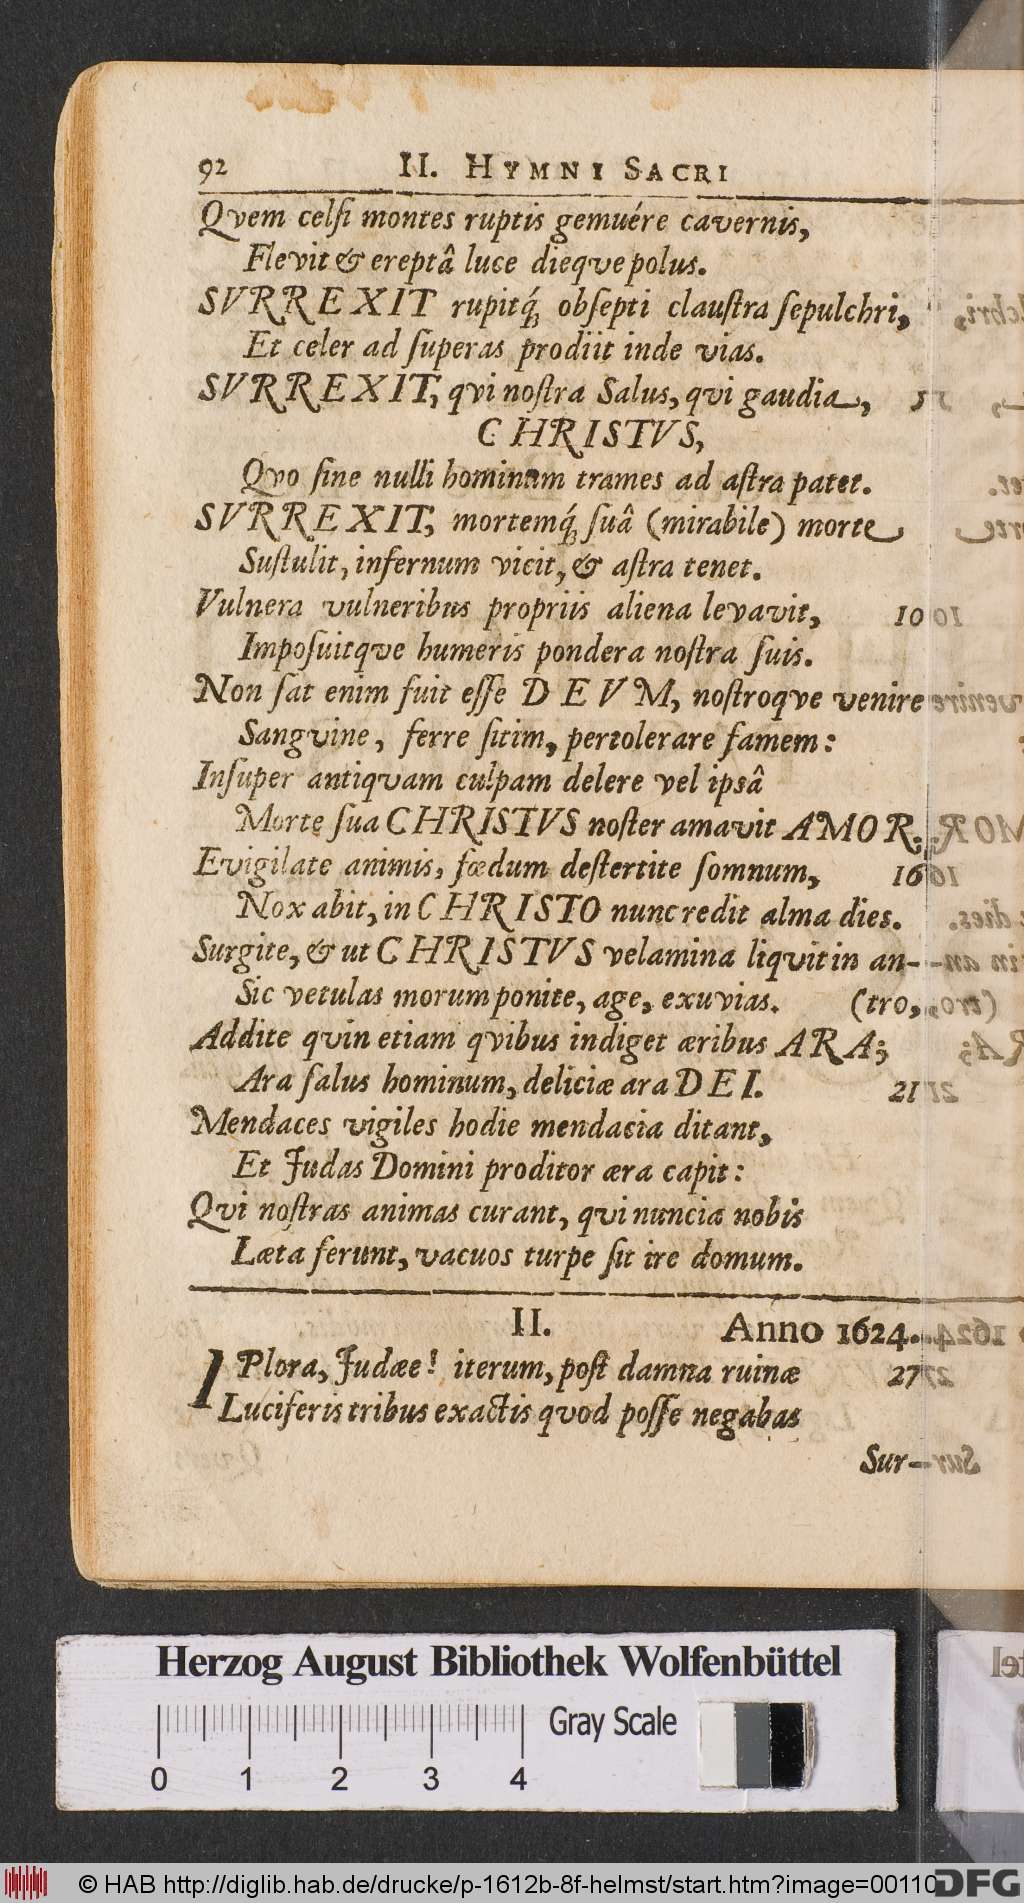 92 II. HYMNI SACRI
Qvem celſi montes ruptis gemuére cavernis,
Flevit & ereptâ luce dieqve polus.
SVRREXIT rupitq́ꝫ obſepti clauſtra ſepulchri,
Et celer ad ſuperas prodiit inde vias.
SVRREXIT, qvi noſtra Salus, qvi gaudia, 5
CHRISTVS,
Qvo ſine nulli hominum trames ad aſtra patet.
SVRREXIT, mortemq́ꝫ ſuâ (mirabile) morte
Suſtulit, infernum vicit, & aſtra tenet.
Vulnera vulneribus propriis aliena levavit, 10
Impoſuitqve humeris pondera noſtra ſuis.
Non ſat enim fuit eſſe DEVM, noſtroqve venire
Sangvine, ferre ſitim, pertolerare famem:
Inſuper antiqvam culpam delere vel ipsâ
Morte ſua CHRISTVS noſter amavit AMOR.
Evigilate animis, fœdum deſtertite ſomnum, 16
Nox abit, in CHRISTO nunc redit alma dies.
Surgite, & ut CHRISTVS velamina liqvit in an-
Sic vetulas morum ponite, age, exuvias. (tro,
Addite qvin etiam qvibus indiget æribus ARA;
Ara ſalus hominum, deliciæ ara DEI. 21
Mendaces vigiles hodie mendacia ditant,
Et Judas Domini proditor æra capit:
Qvi noſtras animas curant, qvi nuncia nobis
Læta ferunt, vacuos turpe ſit ire domum.
II. Anno 1624.
I Plora, Judæe! iterum, poſt damna ruinæ 27
Luciferis tribus exactis qvod poſſe negabas
Sur-
Herzog August Bibliothek Wolfenbüttel
0 1 2 3 4 Gray Scale
© HAB http://diglib.hab.de/drucke/p-1612b-8f-helmst/start.htm?image=00110
DFG